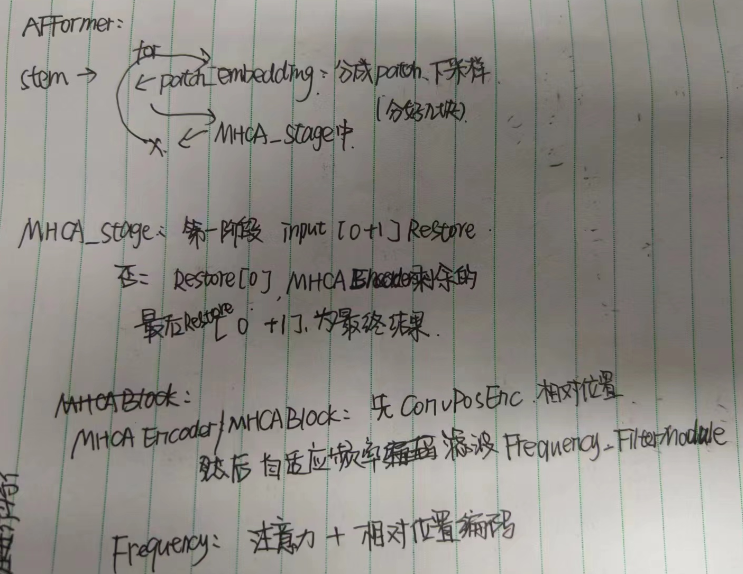 AFFormer:
for
stem → ← patch_embedding: 分成patch、下采样
(分好几块)
x ← MHCA_stage中
MHCA_stage: 第一阶段 input [0+1] Restore
否= Restore[0], MHCA Encoder剩余的
最后Restore[0 +1], 为最终结果.
MHCABlock:
MHCA Encoder/MHCABlock: 先 ConvPosEnc 相对位置
然后自适应频率 滤波 Frequency_FilterModule
Frequency: 注意力 + 相对位置编码